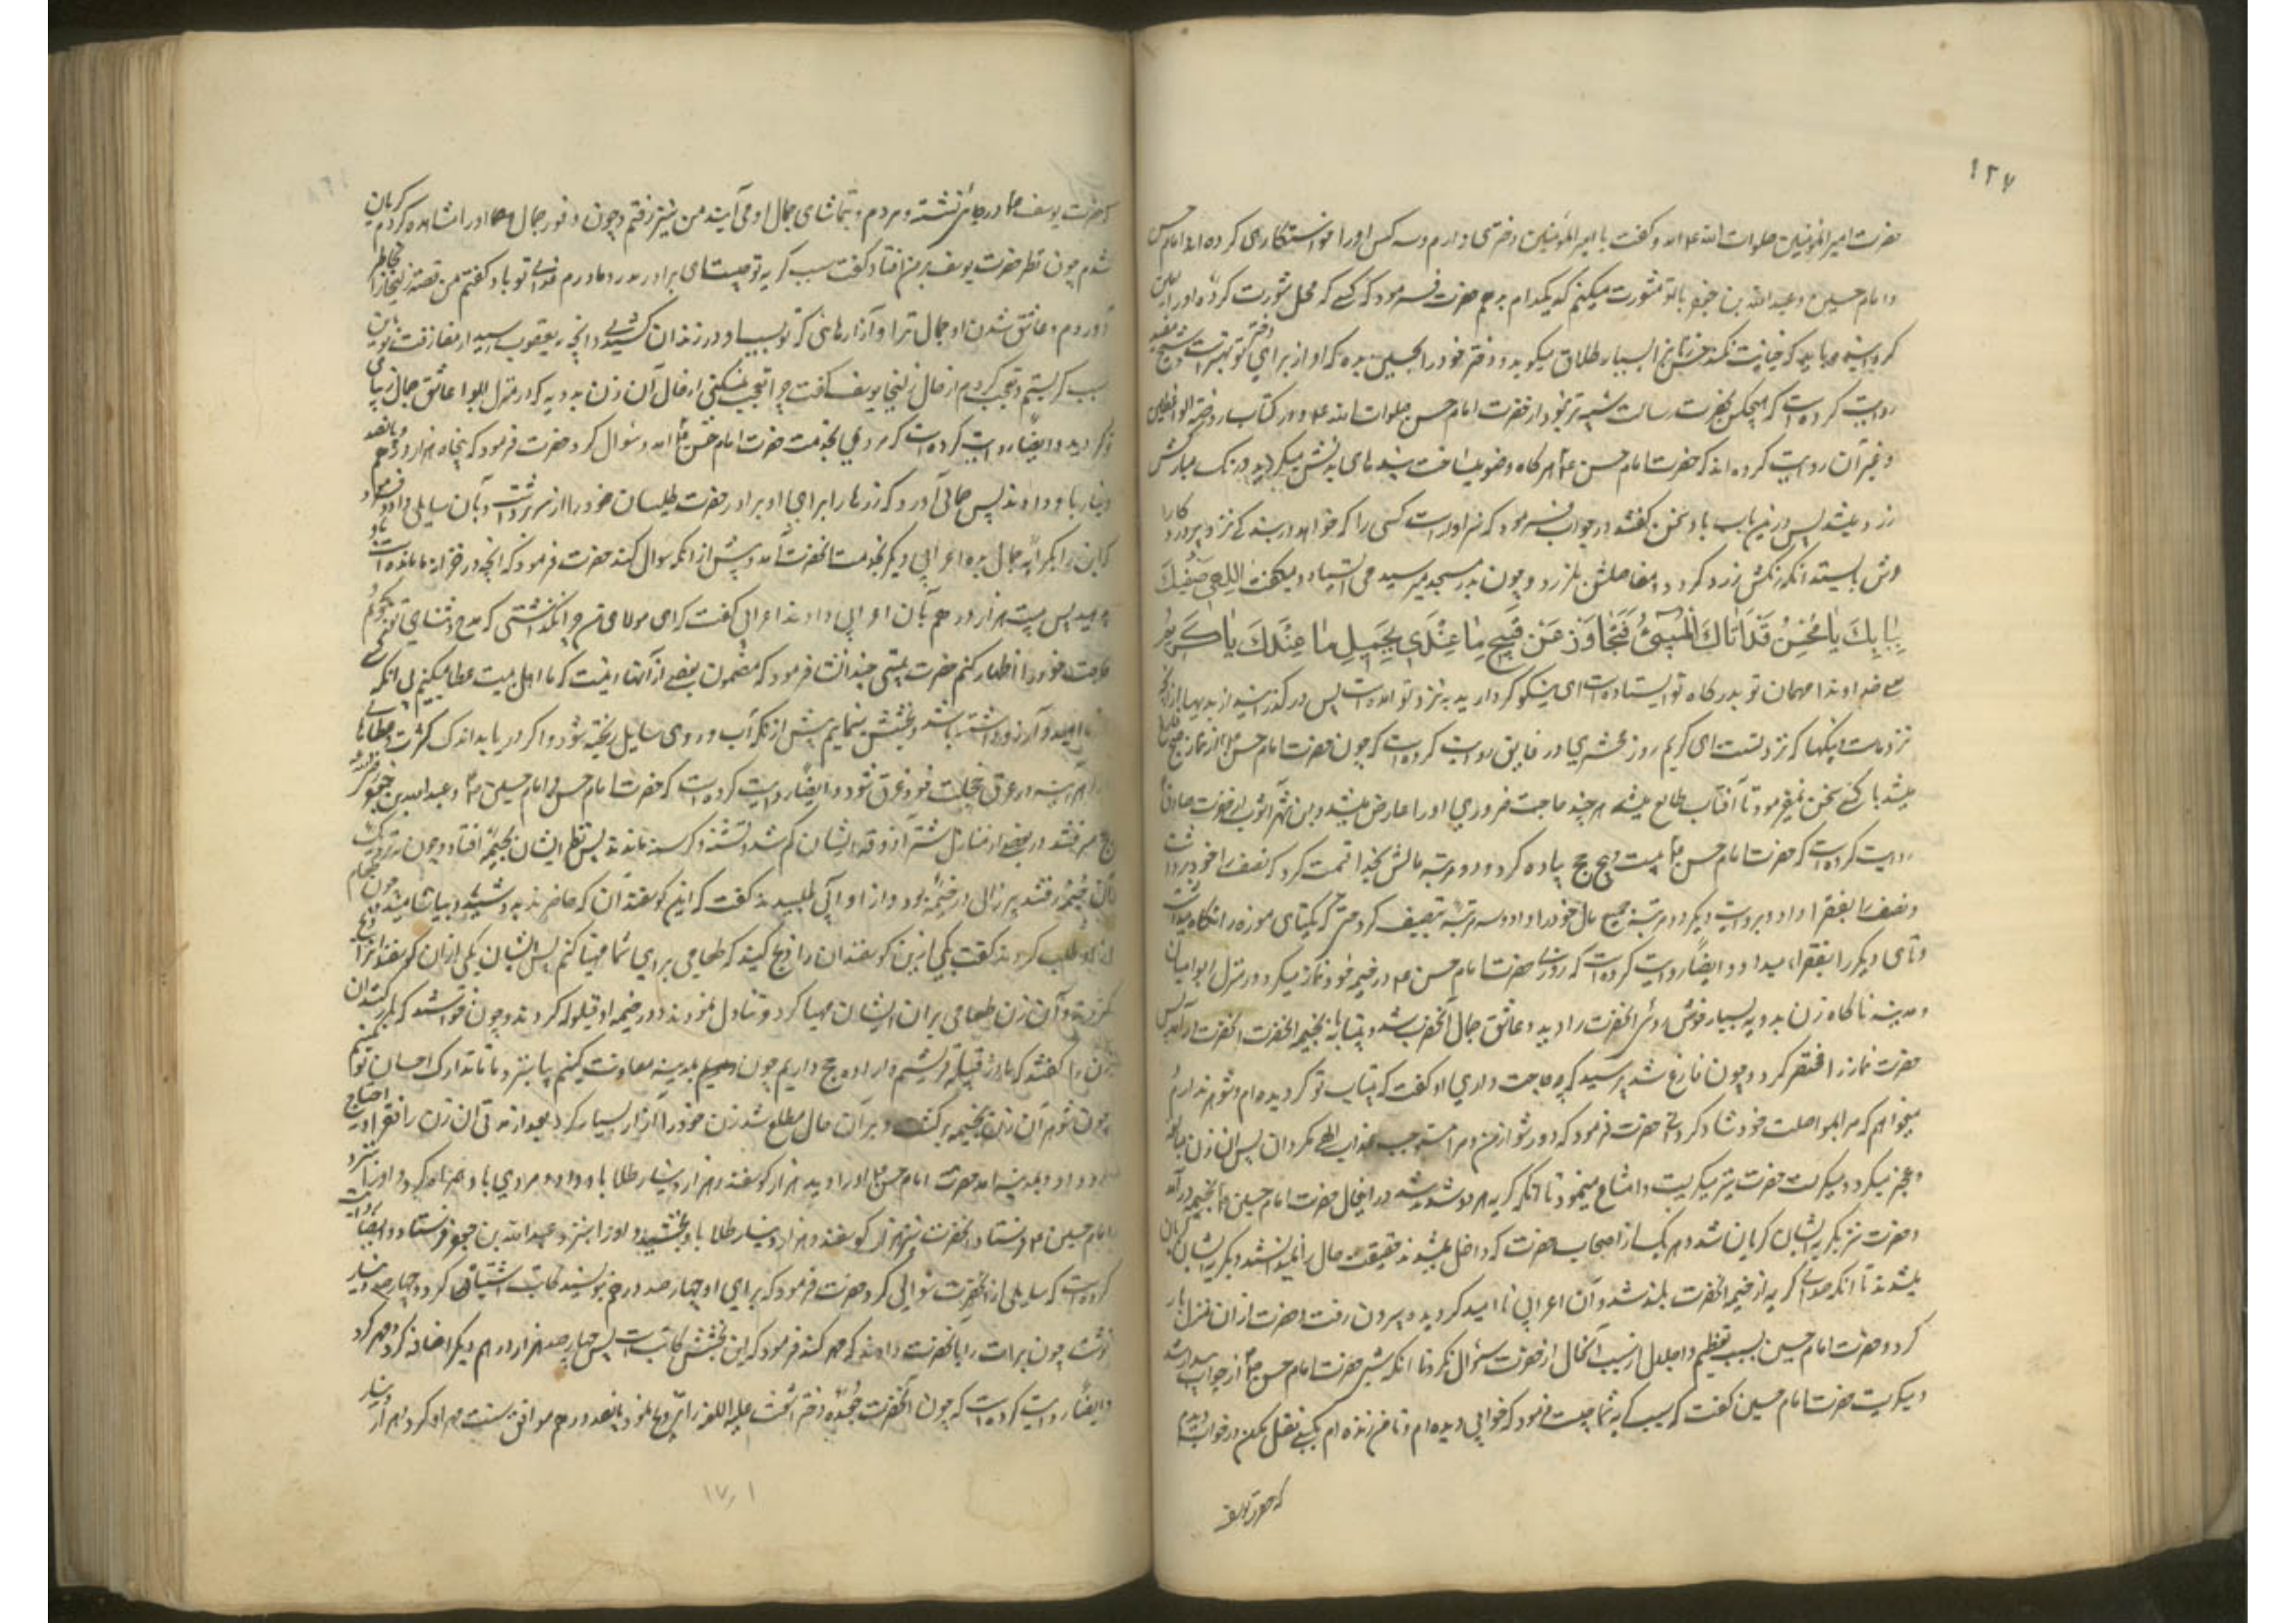 ۱۲۷
حضرت امیر المؤمنین صلوات الله علیه آمد و گفت یا امیر المؤمنین دختری دارم و سه کس او را خواستگاری کرده اند امام حسن
و امام حسین و عبدالله بن جعفر با تو مشورت میکنم که بکدام بدهم حضرت فرمود که کسی که محل مشورت کرده او را امین
کرده میباید که خیانت نکند حسن زنان را بسیار طلاق میگوید و دختر خود را بحسین بده که او از برای دختر تو بهتر است و شیخ مفید
روایت کرده است که هیچکس بحضرت رسالت شبیه تر نبود از حضرت امام حسن صلوات الله علیه و در کتاب روضة الواعظین
و غیر آن روایت کرده اند که حضرت امام حسن ع هرگاه وضو میساخت بندهای بدنش میلرزید و رنگ مبارکش
زرد میشد پس درین باب با او سخن گفتند در جواب فرمود که سزاوار است کسی را که خواهد در بندگی نزد پروردگار
عرش بایستد آنکه رنگش زرد گردد و مفاصلش بلرزد و چون بدر مسجد میرسید می ایستاد و میگفت اِلٰهی ضَیْفُکَ
بِبابِکَ یا مُحْسِنُ قَدْ اَتاکَ الْمُسیٓئُ فَتَجاوَزْ عَنْ قَبیحِ ما عِنْدی بِجَمیلِ ما عِنْدَکَ یا کَریمُ
یعنی خداوندا مهمان تو بدرگاه تو ایستاده است ای نیکوکردار بد به نزد تو آمده است پس در گذر از بدیها که
نزد ماست به نیکیها که نزد تست ای کریم روز محشر در فایق روایت کرده است که چون حضرت امام حسن ع از نماز صبح فارغ
میشد با کسی سخن نمیفرمود تا آفتاب طالع میشد هر چند حاجت ضروری او را عارض میشد و ابن شهرآشوب از حضرت صادق ع
روایت کرده است که حضرت امام حسن ع بیست و پنج حج پیاده کرد و دو مرتبه مالش بخدا قسمت کرد که نصف را خود برداشت
و نصف را بفقرا داد و بروایت دیگر دو مرتبه جمیع مال خود را داد و سه مرتبه تنصیف کرد حتی که یکتای موزه را نگاه میداشت
و تای دیگر را بفقرا میداد و ایضاً روایت کرده است که روزی حضرت امام حسن ع در خیمه خود نماز میکرد در منزل ابوا میان
و مدینه ناگاه زن بدویه بسیار خوش روئی آنحضرت را دید و عاشق جمال آنحضرت شد و بیتابانه بخیمه آنحضرت درآمد پس
حضرت نماز را مختصر کرد و چون فارغ شد پرسید که چه حاجت داری او گفت که بیتاب تو گردیده ام و شوهر ندارم
میخواهم که مرا بمواصلت خود شاد گردانی حضرت فرمود که دور شو از من و مرا مستوجب عذاب الهی مگردان پس آن زن مبالغه
و عجز میکرد و میگریست حضرت نیز میگریست و امتناع مینمود تا آنکه گریه هر دو شدید شد در این حال حضرت امام حسین ع بخیمه درآمد
و حضرت نیز بگریه ایشان گریان شد و هر یک از اصحاب حضرت که داخل میشدند حقیقت حال را نمیدانستند و بگریه ایشان گریان
میشدند تا آنکه صدای گریه از خیمه آنحضرت بلند شد و آن اعرابی نا امید گردیده بیرون رفت حضرت از آن منزل بار
کرد و حضرت امام حسین بسبب تعظیم و اجلال از سبب آنحال از حضرت سؤال نکرد تا آنکه شبی حضرت امام حسن ع از خواب بیدار شد
و میگریست حضرت امام حسین گفت که سبب گریه شما چیست فرمود که خوابی دیده ام و تا من زنده ام بکسی نقل مکن در خواب دیدم
که حضرت یوسف
که حضرت یوسف ع در جائی نشسته و مردم بتماشای جمال او می آیند من نیز رفتم و چون وفور جمال او را مشاهده کردم گریان
شدم چون نظر حضرت یوسف بر من افتاد گفت سبب گریه تو چیست ای برادر پدر و مادرم فدای تو باد گفتم من قصه زلیخا را بخاطر
آوردم و عاشق شدن او جمال ترا و آزارهائی که تو بسبب او در زندان کشیدی و آنچه بیعقوب رسید از مفارقت تو باین
سبب گریستم و تعجب کردم از حال زلیخا یوسف گفت چرا تعجب نمیکنی از حال آن زن بدویه که در منزل ابوا عاشق جمال زیبای
تو گردید و ایضاً روایت کرده است که مردی بخدمت حضرت امام حسن ع آمد و سؤال کرد حضرت فرمود که پنجاه هزار درهم و پانصد
دینار باو دادند پس حمالی آورد که زرها را برای او بردارد حضرت طیلسان خود را از سر برداشت و بآن سایل داد و فرمود
که این را بکرایه حمال بده اعرابی دیگر بخدمت آنحضرت آمد و پیش از آنکه سؤال کند حضرت فرمود که آنچه در خزانه ما مانده است باو
بدهید پس بیست هزار درهم بآن اعرابی دادند اعرابی گفت که ای مولای من چرا نگذاشتی که مدح و ثنای تو بگویم و
حاجت خود را اظهار کنم حضرت بیتی چند انشا فرمود که مضمون بعضی از آنها اینست که ما اهل بیت عطا میکنیم بی آنکه کسی
امید و آرزو داشته باشد و بخشش مینمایم پیش از آنکه آب روی سایل ریخته شود و اگر دریا بداند کثرت عطاهای
ما را هرآینه در عرق خجلت فرو غرق شود و ایضاً روایت کرده است که حضرت امام حسن و امام حسین ع و عبدالله بن جعفر
بحج میرفتند در بعضی از منازل شتر آذوقه ایشان گم شد و تشنه و گرسنه ماندند پس نظر ایشان بخیمه افتاد و چون بنزدیک
آن خیمه رفتند پیر زالی در خیمه بود و از او آبی طلبیدند گفت که این گوسفندان که حاضرند بدوشید و بیاشامید چون طعام
از او طلب کردند گفت یکی ازین گوسفندان را ذبح کنید که طعامی برای شما مهیا کنم پس ایشان یکی از آن گوسفندان را ذبح
کردند و آن زن طعامی برای ایشان مهیا کرد و تناول نمودند و در خیمه او قیلوله کردند و چون خواستند که بار کنند آن
زن را گفتند که ما از قبیله قریشیم و اراده حج داریم چون بمدینه معاودت کنیم بیا بنزد ما تا تدارک احسان تو بکنیم
چون شوهر آن زن بخیمه برگشت و بر آن حال مطلع شد زن خود را آزار بسیار کرد بعد از مدتی آن زن را فقر و احتیاج
رو داد و بمدینه آمد حضرت امام حسن ع او را دید هزار گوسفند و هزار دینار طلا باو داد و مردی باو همراه کرد و او را بنزد
امام حسین ع فرستاد آنحضرت نیز هزار گوسفند و هزار دینار طلا باو بخشید و او را بنزد عبدالله بن جعفر فرستاد و ایضاً روایت
کرده است که سایلی از آنحضرت سؤالی کرد حضرت فرمود که برای او چهار صد درهم بنویسند کاتب اشتباهی کرد و چهار صد دینار
نوشت چون برات را بآنحضرت دادند که مهر کند فرمود که این بخشش کاتبست پس چهار صد هزار درهم دیگر اضافه کرد و مهر کرد
و ایضاً روایت کرده است که چون آنحضرت جعده دختر اشعث علیه اللعنه را تزویج نمود پانصد درهم موافق سنت مهر او کرد و هزار دینار